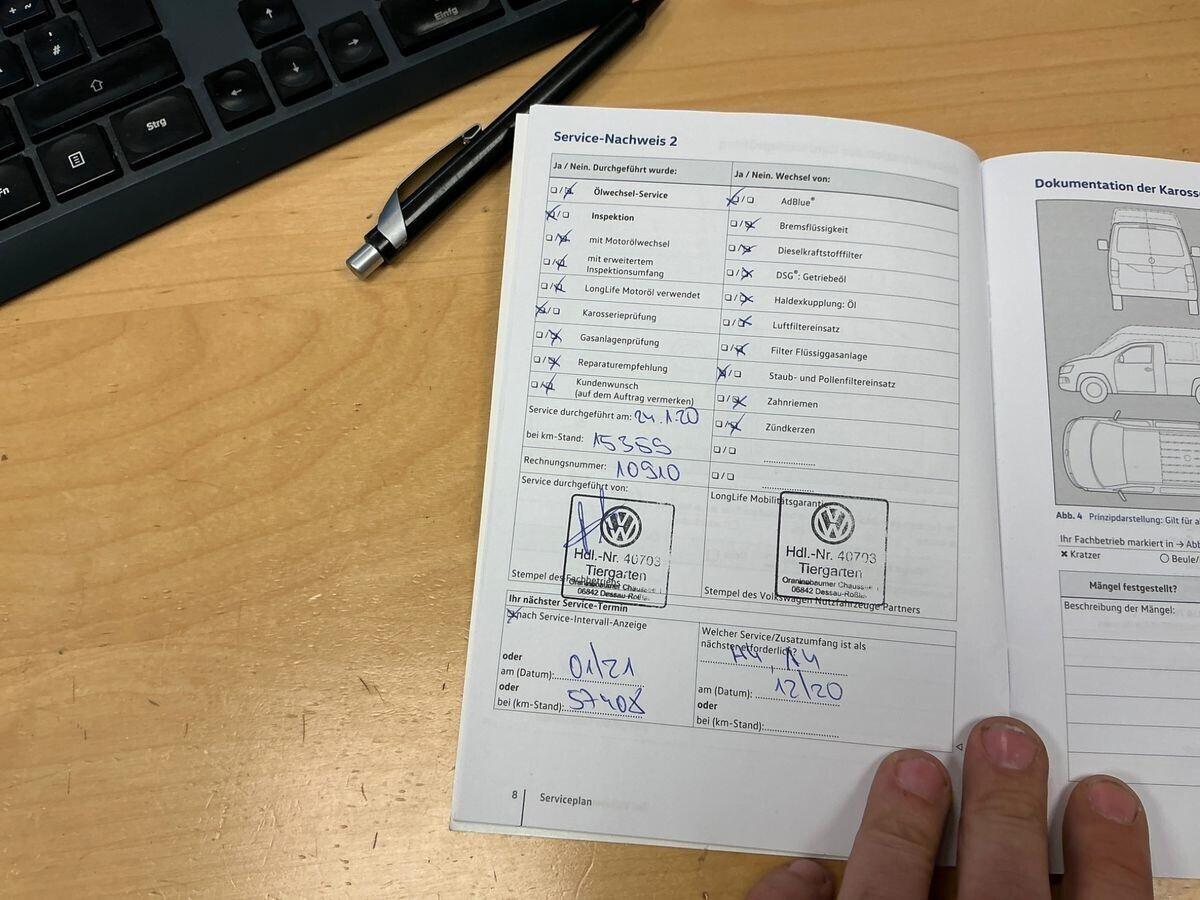 Einfg
Strg
Fn
Service-Nachweis 2
Ja / Nein. Durchgeführt wurde:
Ölwechsel-Service
Inspektion
mit Motorölwechsel
mit erweitertem
Inspektionsumfang
LongLife Motoröl verwendet
Karosserieprüfung
Gasanlagenprüfung
Reparaturempfehlung
Kundenwunsch
(auf dem Auftrag vermerken)
Service durchgeführt am: 24.1.20
bei km-Stand: 15355
Rechnungsnummer: 10910
Service durchgeführt von:
Hdl.-Nr. 40703
Tiergarten
Oranienbaumer Chaussee
06842 Dessau-Roßlau
Stempel des Fachbetriebs
Ja / Nein. Wechsel von:
AdBlue®
Bremsflüssigkeit
Dieselkraftstofffilter
DSG®: Getriebeöl
Haldexkupplung: Öl
Luftfiltereinsatz
Filter Flüssiggasanlage
Staub- und Pollenfiltereinsatz
Zahnriemen
Zündkerzen
LongLife Mobilitätsgarantie
Hdl.-Nr. 40703
Tiergarten
Oranienbaumer Chaussee
06842 Dessau-Roßlau
Stempel des Volkswagen Nutzfahrzeuge Partners
Ihr nächster Service-Termin
nach Service-Intervall-Anzeige
oder
am (Datum): 01/21
oder
bei (km-Stand): 57408
Welcher Service/Zusatzumfang ist als
nächster erforderlich?
am (Datum): 12/20
oder
bei (km-Stand):
8 Serviceplan
Dokumentation der Karosse
Abb. 4 Prinzipdarstellung: Gilt für a
Ihr Fachbetrieb markiert in → Abb
× Kratzer ○ Beule/
Mängel festgestellt?
Beschreibung der Mängel: